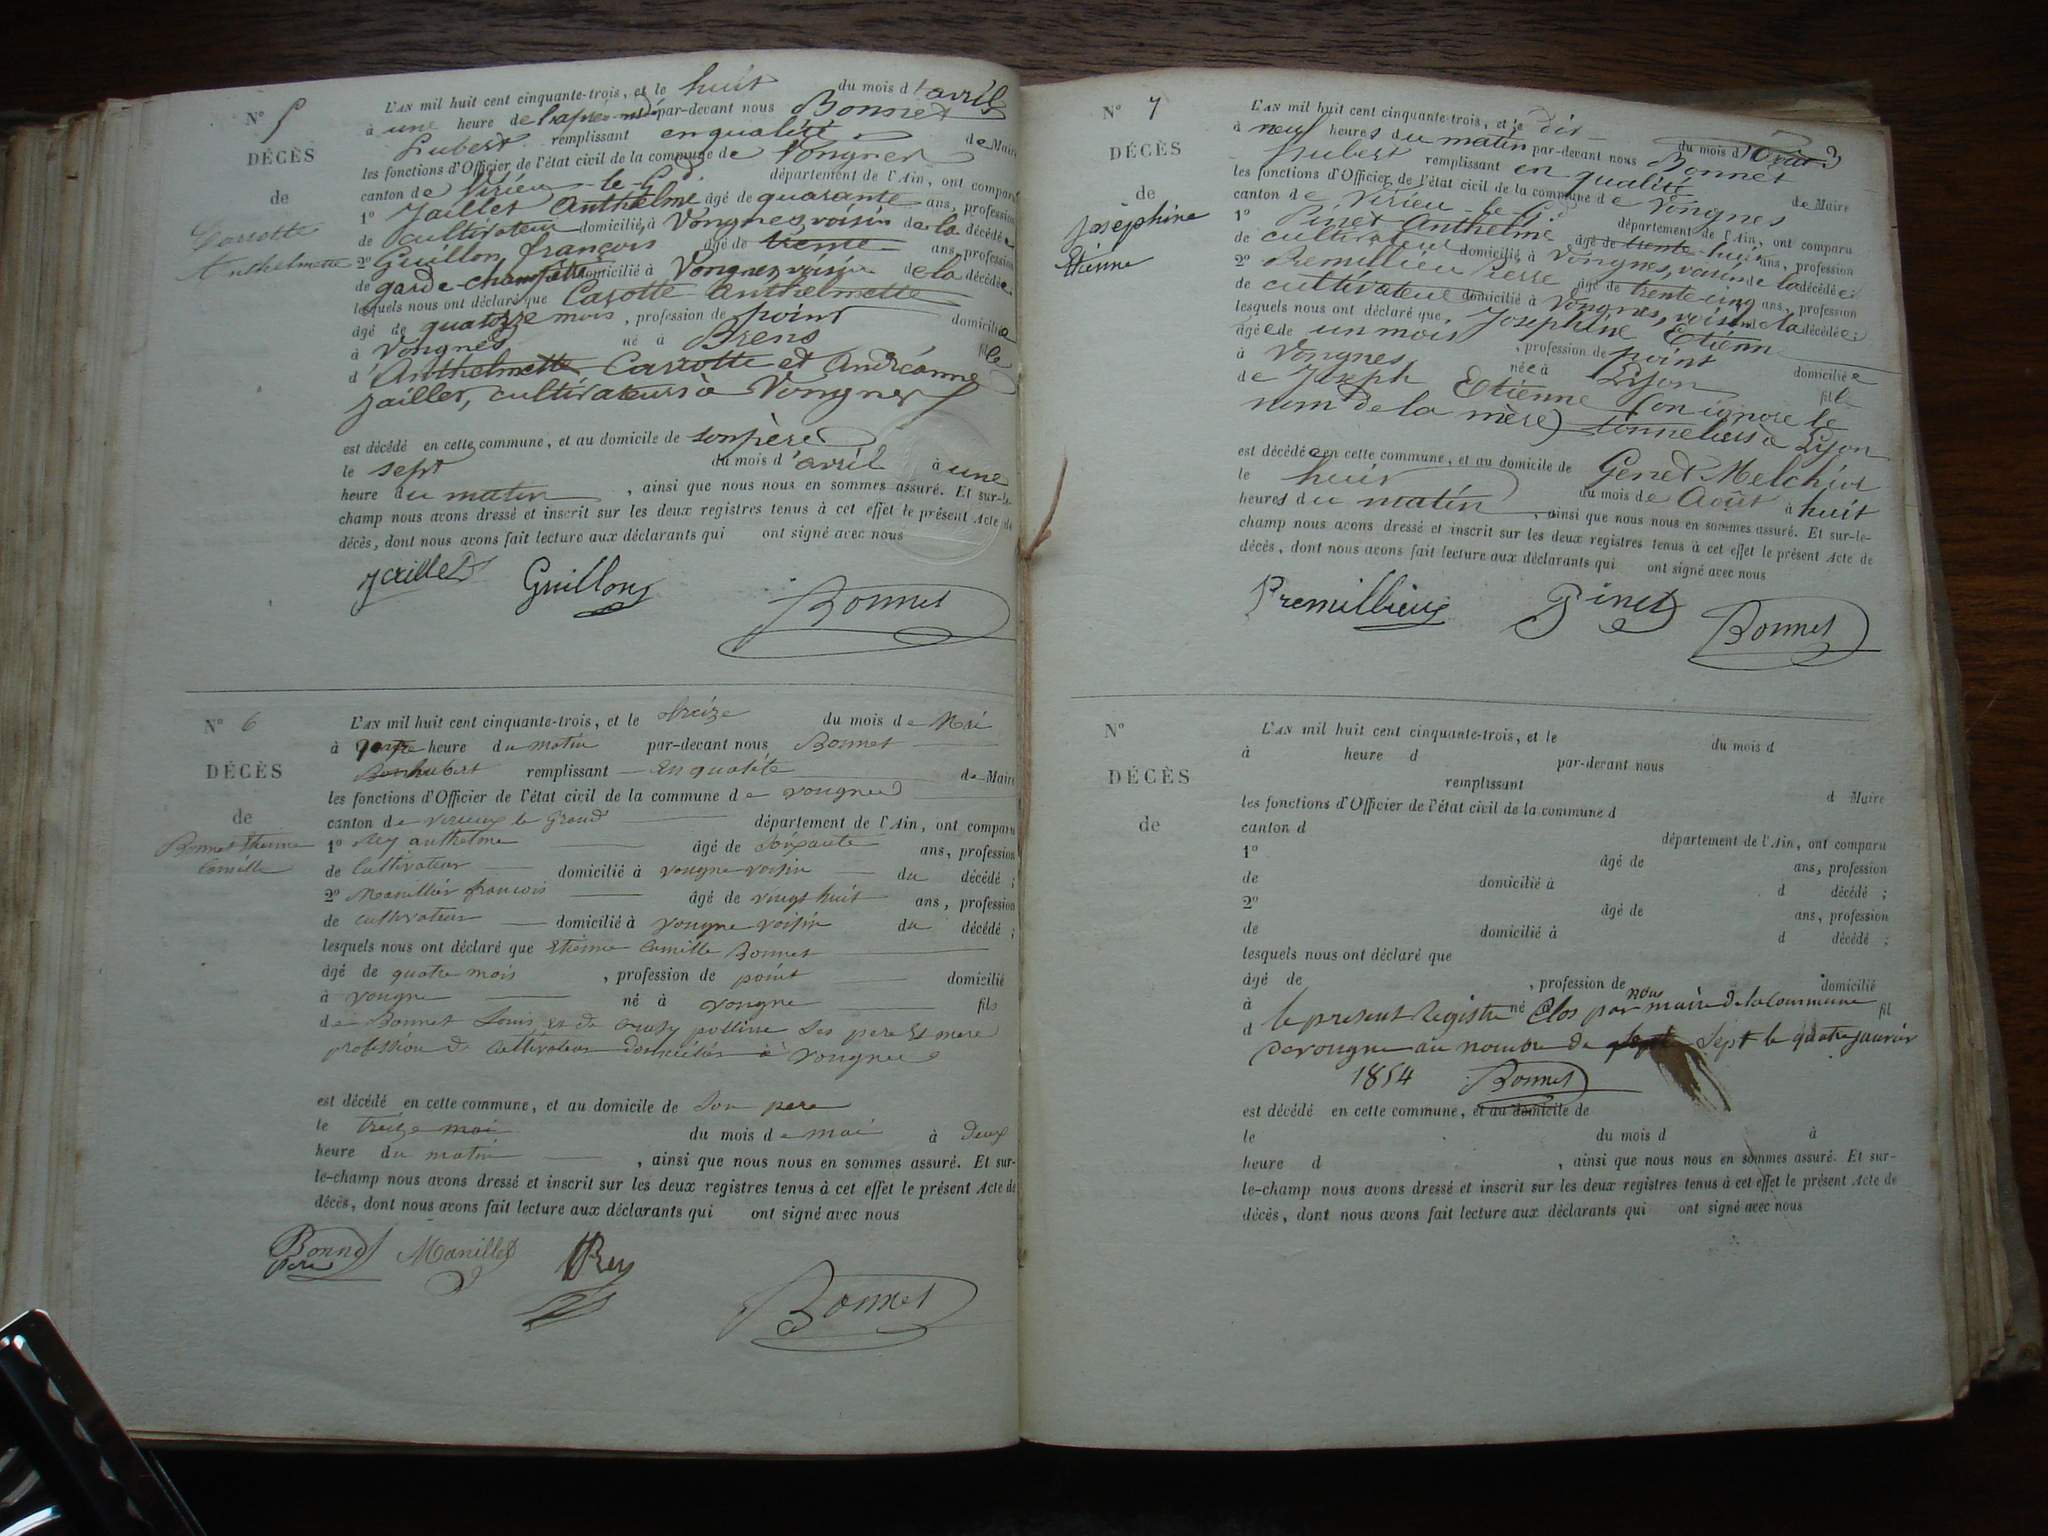 N° 5
DÉCÈS
de
Carrotte
Anthelmette
L'AN mil huit cent cinquante-trois, et le huit du mois d'avril
à une heure de l'après-midi par-devant nous Bonnet
hubert remplissant en qualité de Maire
les fonctions d'Officier de l'état civil de la commune de Vongnes
canton de Virieu-le-Gd département de l'Ain, ont comparu
1° Jaillet Anthelme âgé de quarante ans, profession
de cultivateur domicilié à Vongnes, voisin de la décédée
2° Guillon françois âgé de trente ans, profession
de garde-champêtre domicilié à Vongnes, voisin de la décédée
lesquels nous ont déclaré que Carotte Anthelmette
âgé de quatorze mois, profession de point domiciliée
à Vongnes né à Brens fille
d'Anthelmette Carrotte et Andréanne
Jaillet, cultivateurs à Vongnes
est décédé en cette commune, et au domicile de son père
le sept du mois d'avril à une
heure du matin, ainsi que nous nous en sommes assuré. Et sur-le-
champ nous avons dressé et inscrit sur les deux registres tenus à cet effet le présent Acte de
décès, dont nous avons fait lecture aux déclarants qui ont signé avec nous
Jaillet Guillon Bonnet
N° 6
DÉCÈS
de
Bonnet Etienne
Camille
L'AN mil huit cent cinquante-trois, et le treize du mois de Mai
à heure du matin par-devant nous Bonnet
hubert remplissant en qualité de Maire
les fonctions d'Officier de l'état civil de la commune de vongnes
canton de virieux le Grand département de l'Ain, ont comparu
1° Rey anthelme âgé de soixante ans, profession
de cultivateur domicilié à vongne voisin du décédé ;
2° Manillier françois âgé de vingt huit ans, profession
de cultivateur domicilié à vongne voisin du décédé ;
lesquels nous ont déclaré que Etienne Camille Bonnet
âgé de quatre mois, profession de point domicilié
à vongne né à vongne fils
de Bonnet Louis et de polline ses pere et mere
profession de cultivateur domiciliés à vongnes
est décédé en cette commune, et au domicile de son pere
le treize mai du mois de mai à deux
heure du matin, ainsi que nous nous en sommes assuré. Et sur-
le-champ nous avons dressé et inscrit sur les deux registres tenus à cet effet le présent Acte de
décès, dont nous avons fait lecture aux déclarants qui ont signé avec nous
Bonnet Manillier Rey
pere
Bonnet
N° 7
DÉCÈS
de
Joséphine
Etienne
L'AN mil huit cent cinquante-trois, et le dix du mois d'Août
à neuf heures du matin par-devant nous Bonnet
hubert remplissant en qualité de Maire
les fonctions d'Officier de l'état civil de la commune de Vongnes
canton de Virieu-le-Gd département de l'Ain, ont comparu
1° Pinet Anthelme âgé de trente-huit ans, profession
de cultivateur domicilié à Vongnes, voisin de la décédée ;
2° Premillieu Pierre âgé de trente-cinq ans, profession
de cultivateur domicilié à Vongnes, voisin de la décédée ;
lesquels nous ont déclaré que Joséphine Etienne
âgée de un mois, profession de point domiciliée
à Vongnes née à Lyon fille
de Joseph Etienne (on ignore le
nom de la mère) tonneliers à Lyon
est décédée en cette commune, et au domicile de Genet Melchior
le huit du mois de Août à huit
heures du matin, ainsi que nous nous en sommes assuré. Et sur-le-
champ nous avons dressé et inscrit sur les deux registres tenus à cet effet le présent Acte de
décès, dont nous avons fait lecture aux déclarants qui ont signé avec nous
Premillieux Pinet Bonnet
N°
DÉCÈS
de
L'AN mil huit cent cinquante-trois, et le du mois d
à heure d par-devant nous
remplissant d Maire
les fonctions d'Officier de l'état civil de la commune d
canton d département de l'Ain, ont comparu
1° âgé de ans, profession
de domicilié à d décédé ;
2° âgé de ans, profession
de domicilié à d décédé ;
lesquels nous ont déclaré que
âgé de , profession de domicilié
à né à fil
d
le présent Registre Clos par nous maire de la Commune
de vongne au nombre de Sept le quatre janvier
1854 Bonnet
est décédé en cette commune, et au domicile de
le du mois d à
heure d , ainsi que nous nous en sommes assuré. Et sur-
le-champ nous avons dressé et inscrit sur les deux registres tenus à cet effet le présent Acte de
décès, dont nous avons fait lecture aux déclarants qui ont signé avec nous